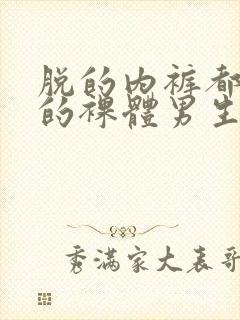 脱的内裤都
的裸體男生
秀满家大表哥